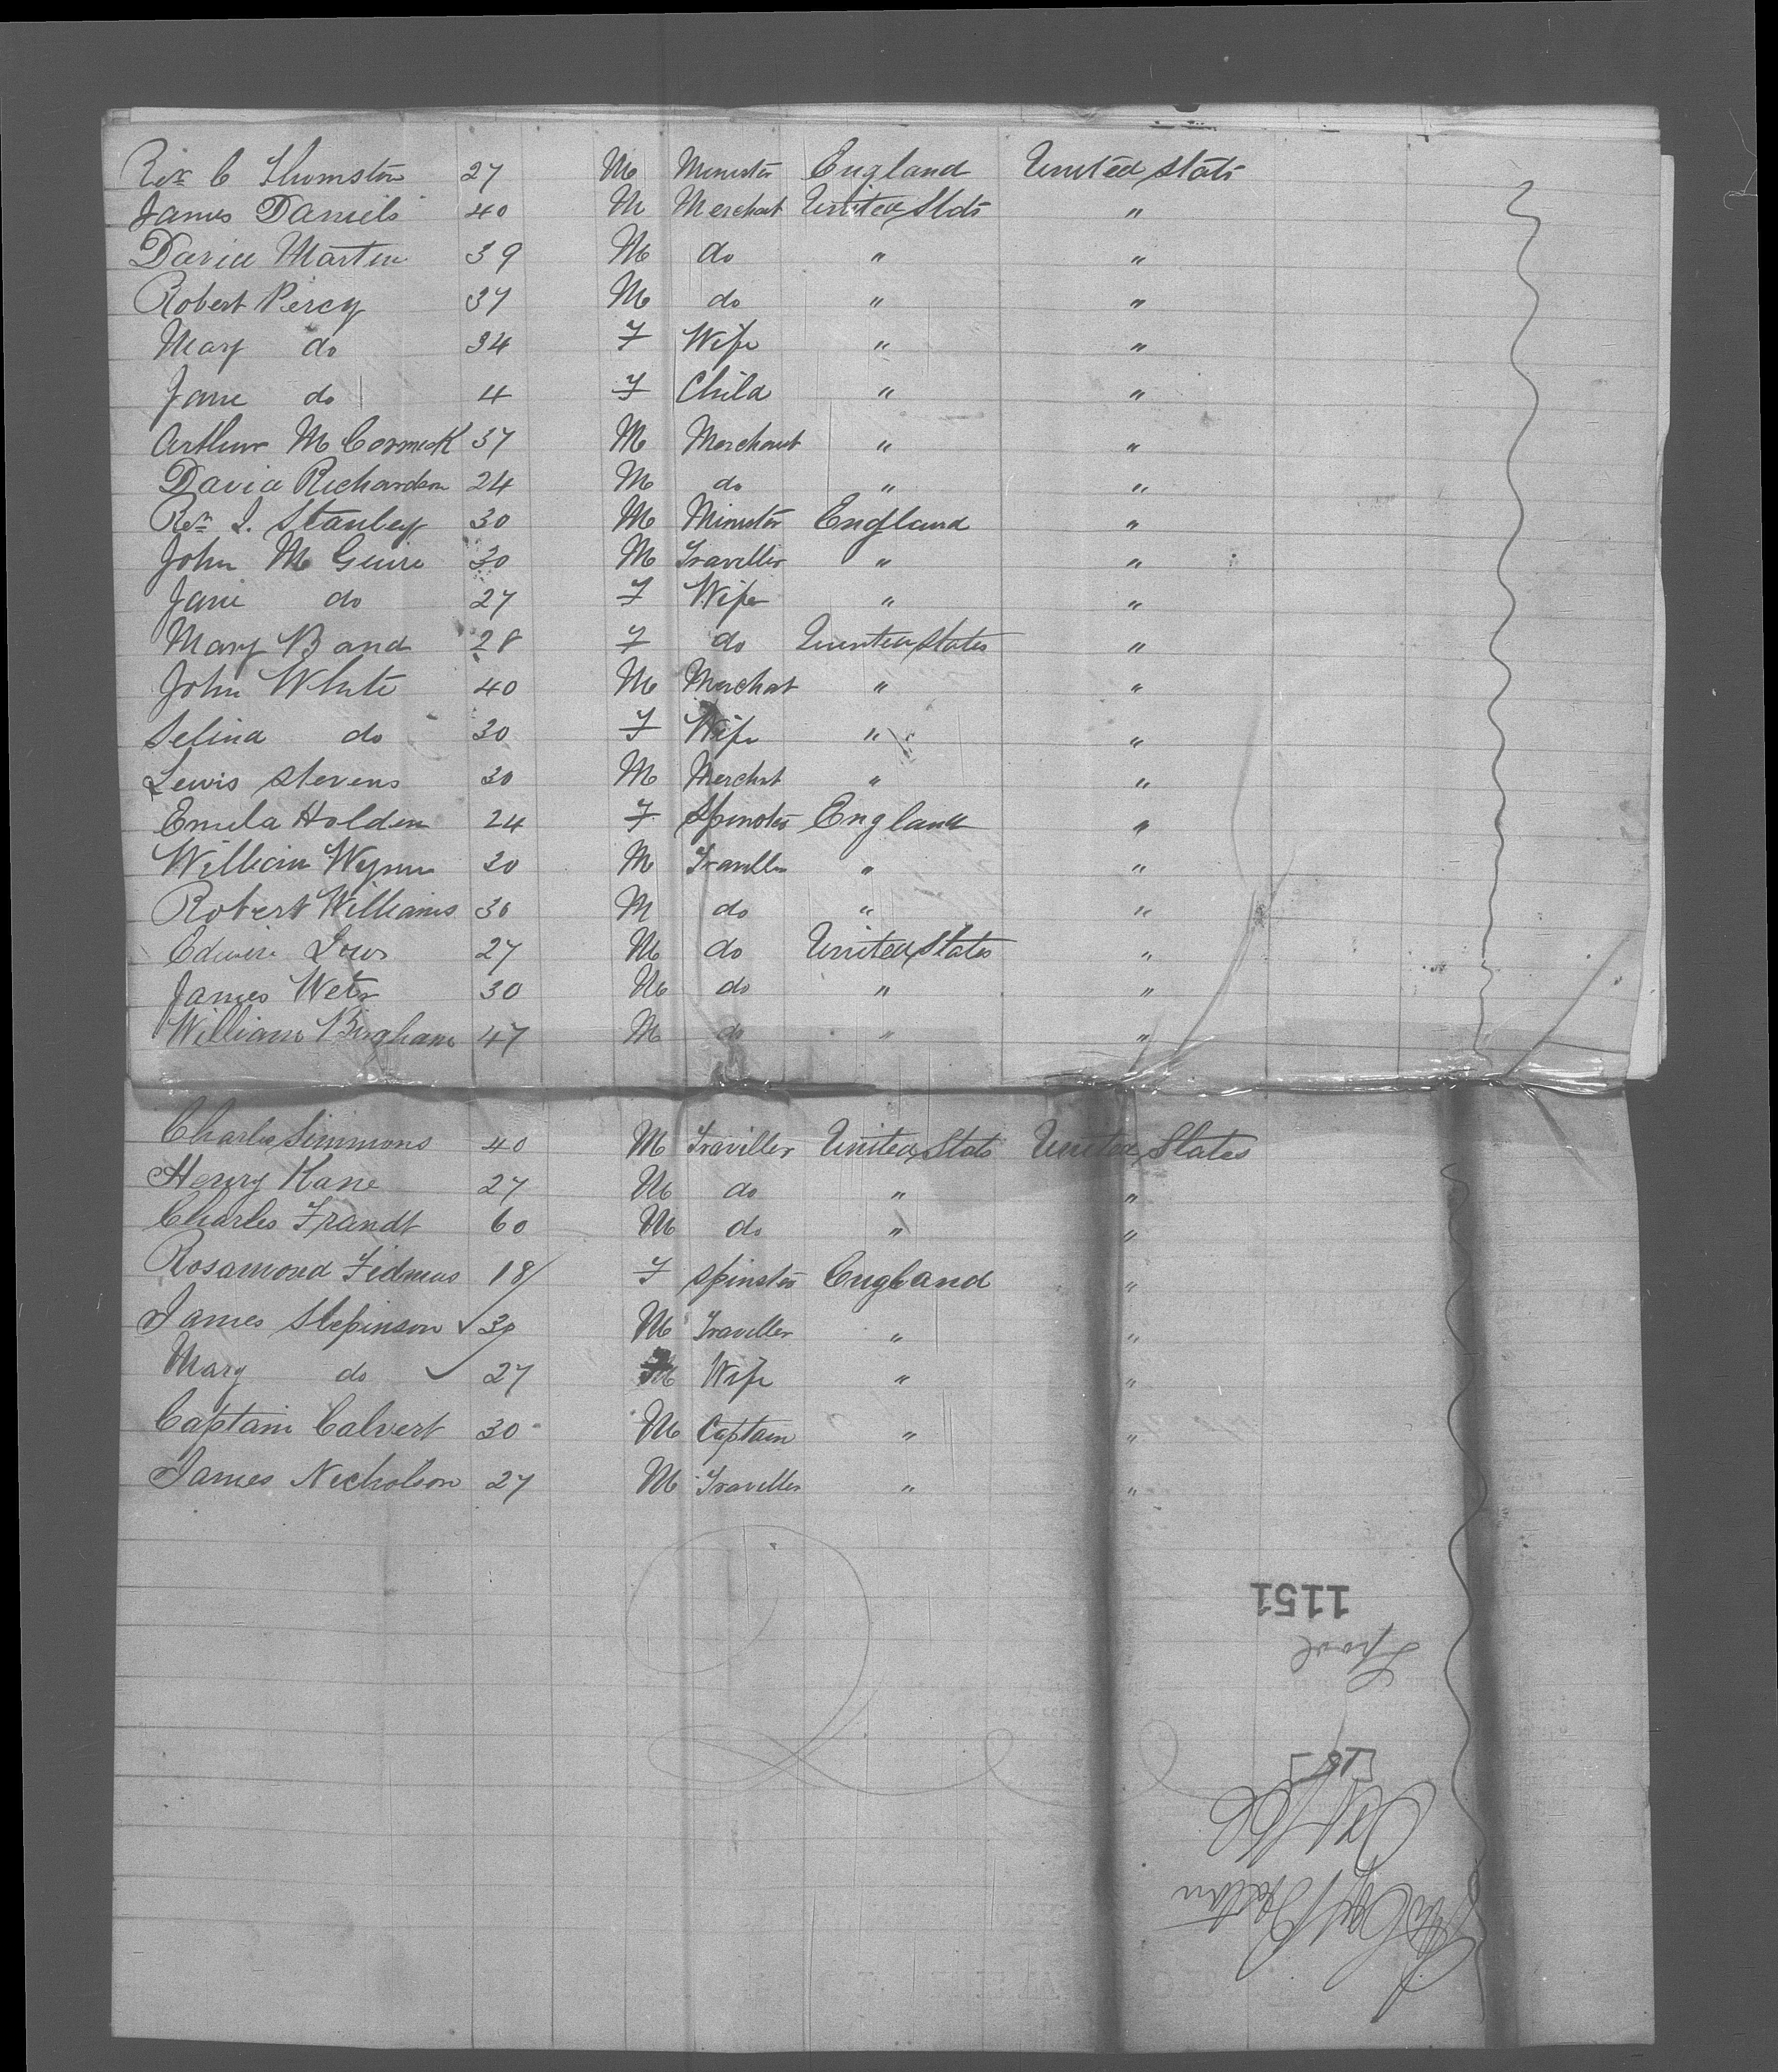 Revd C Thomston 27 M Minister England United Stats
James Daniels 40 M Merchant United Stats "
David Martin 39 M do " "
Robert Percy 37 M do " "
Mary do 34 F Wife " "
Jane do 4 F Child " "
Arthur McCormick 37 M Merchant " "
David Richardson 24 M do " "
Revd J. Stanley 30 M Minister England "
John McGuire 30 M Traveller " "
Jane do 27 F Wife " "
Mary Band 28 F do United States "
John White 40 M Merchant " "
Selina do 30 F Wife " "
Lewis Stevens 30 M Merchat " "
Emila Holden 24 F Spinster England "
William Wynn 30 M Traveller " "
Robert Williams 30 M do " "
Edwin 27 M do United States "
James 30 M do " "
William Bingham 47 M do " "
Charles Simmons 40 M Traveller United Stats United States
Henry Kane 27 M do " "
Charles Frandt 60 M do " "
Rosamond 18 F Spinster England "
James Stepinson ✓ 30 M Traveller " "
Mary do ✓ 27 Wife " "
Captain Calvert 30 M Captain " "
James Nicholson 27 M Traveller " "
1151